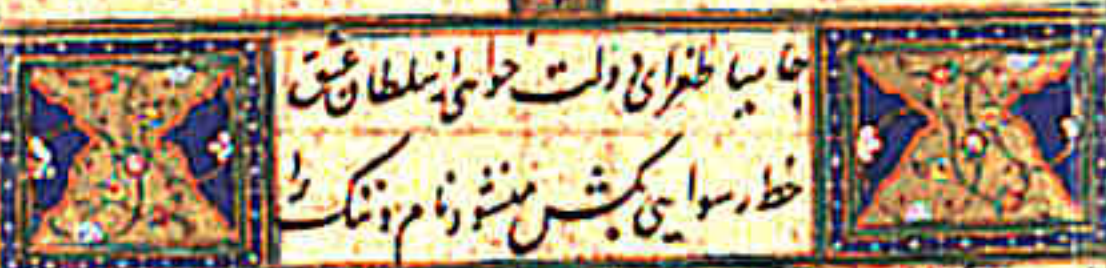 جامیا طغرای دولت خواهی از سلطان عشق
خط رسوایی بکش منشور نام و ننگ را